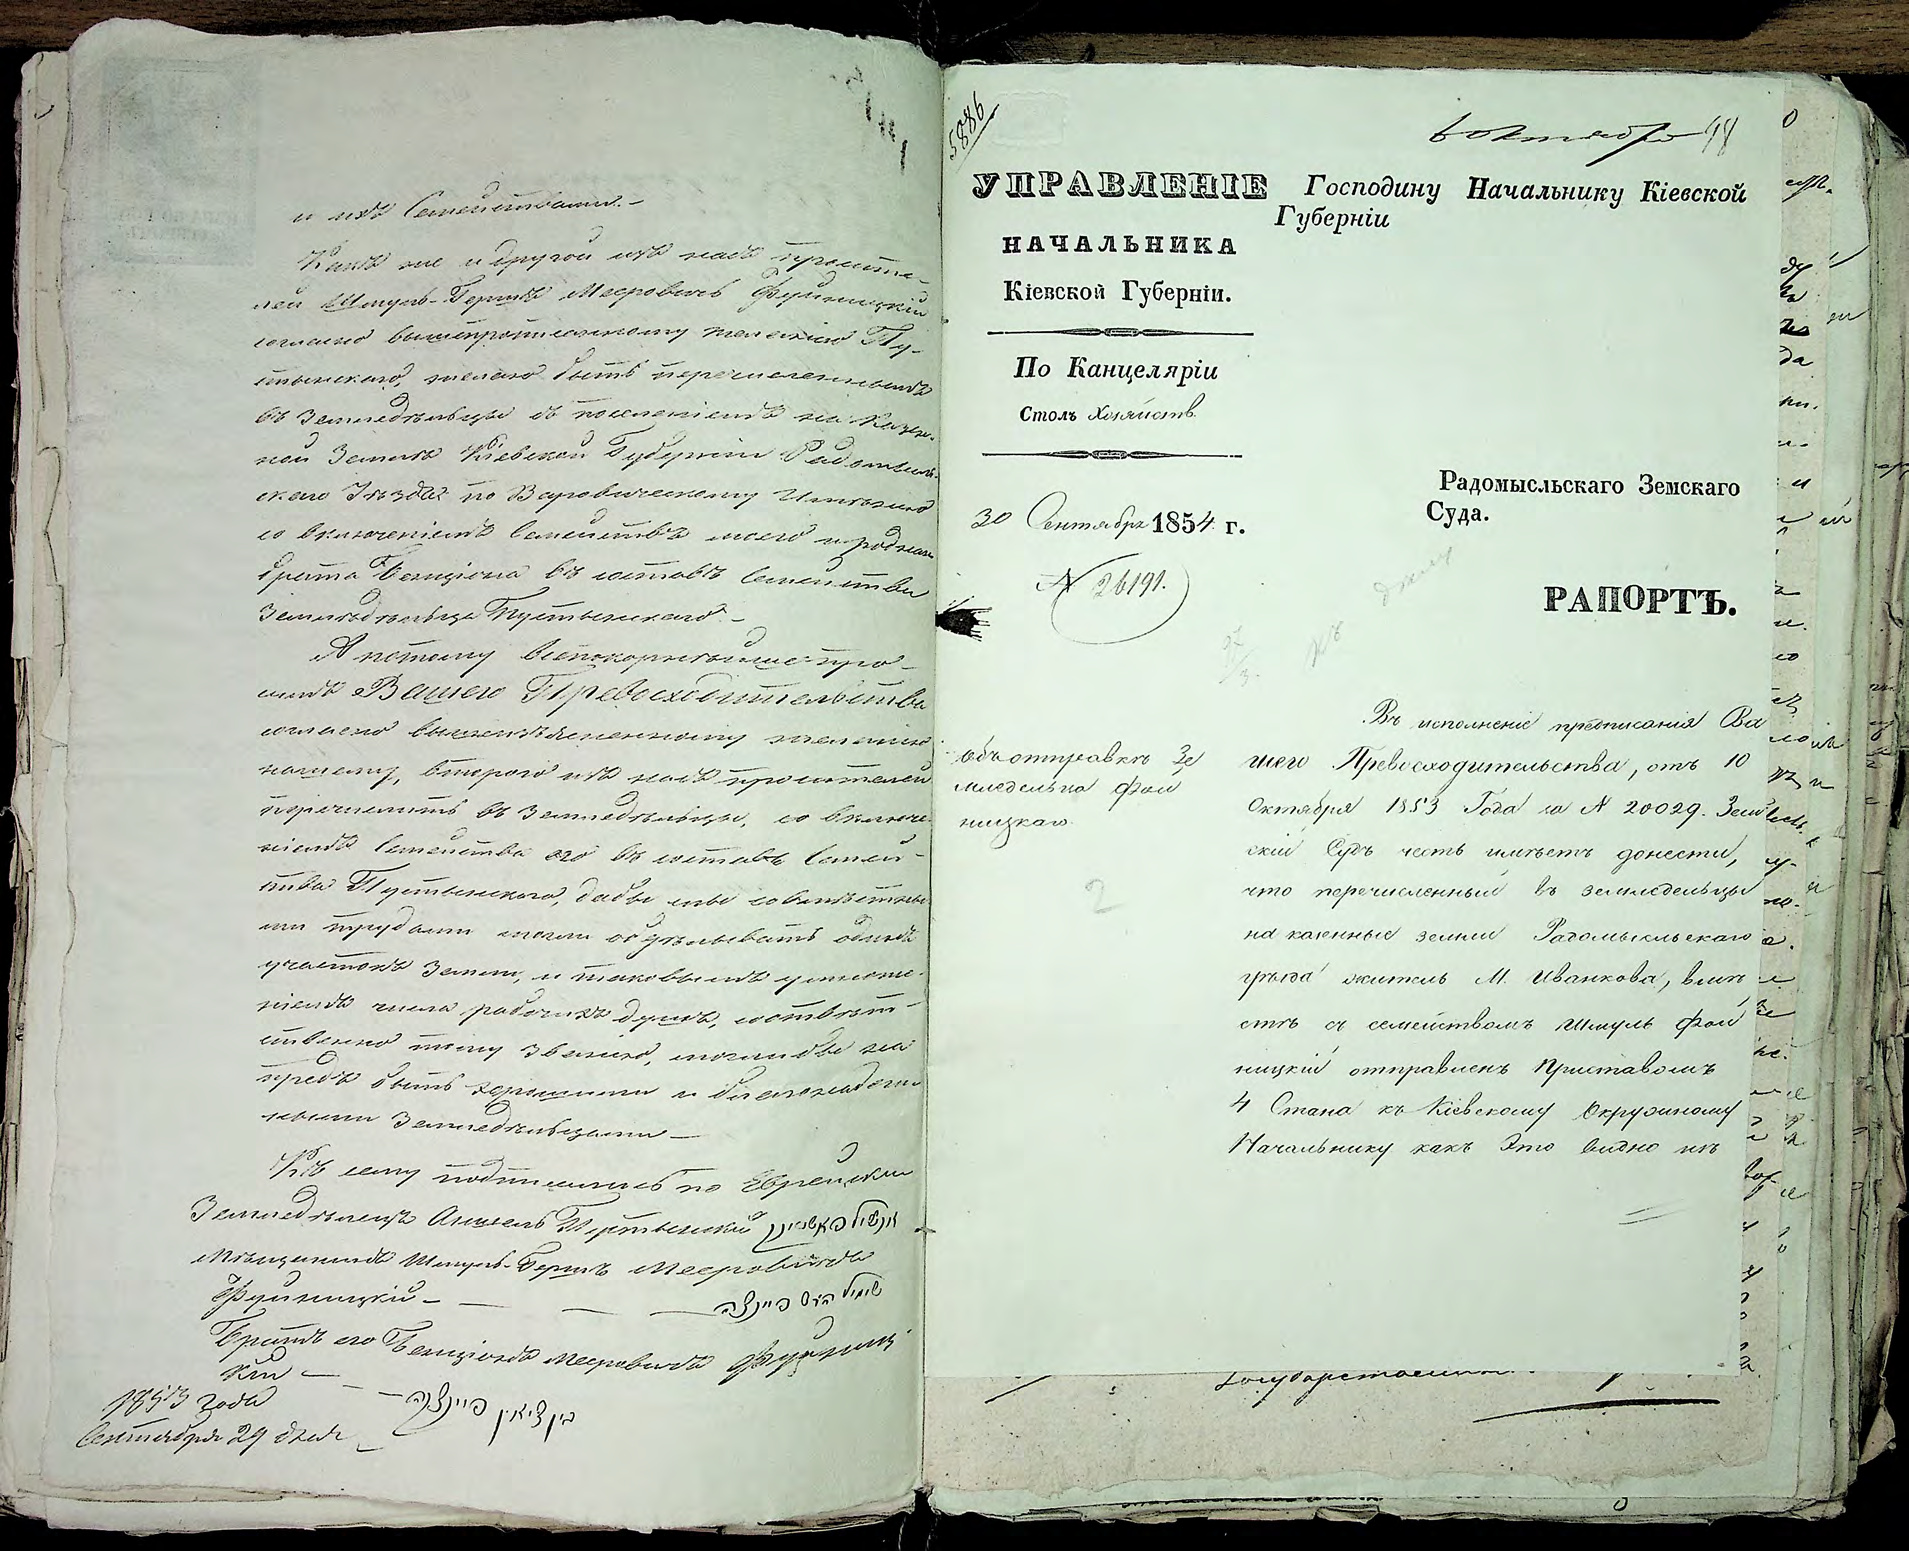 и ихъ Семействами. –
Какъ же и другой изъ насъ просите-
лей Шмуль-Гершъ Мееровичъ Фуйницкій
согласно вышепрописанному желанію Пу-
тынскаго, желаю быть перечисленнымъ
въ Земледѣльцы съ поселеніемъ на Казен-
ной Землѣ Кіевской Губерніи Радомысль-
скаго Уѣзда по Варовическому Имѣнію
со включеніемъ Семействъ моего и роднаго
брата Бенціона въ составъ Семейства
Земледѣльца Путынскаго. –
А потому всепокорнѣйше про-
симъ Вашего Превосходительства
согласно вышеизъясненному желанію
нашему, втораго изъ насъ просителей
перечислить въ Земледѣльцы, со включе-
ніемъ Семейства его въ составъ Семей-
ства Путынскаго, дабы мы совмѣстны-
ми трудами могли обдѣлывать одинъ
участокъ Земли, и таковымъ умноже-
ніемъ числа рабочихъ душъ, соотвѣт-
ственно тому званію, могли бы на
предъ быть хорошими и благонадеж-
ными Земледѣльцами –
Къ сему подписались по Еврейски
Земледѣлецъ Аншель Путынский
Мѣщанинъ Шмуль-Гершъ Мееровичъ
Фуйницкій –
שמואל הירש פיינצקי
Братъ его Бенціонъ Мееровичъ Фуйниц
кій –
בן ציאן פיינצקי
1853 года
Сентября 29 дня
5886
6 октября 48
УПРАВЛЕНІЕ
НАЧАЛЬНИКА
Кіевской Губерніи.
По Канцеляріи
Столъ Хозяйств.
30 Сентября 1854 г.
N 26191.
Господину Начальнику Кіевской
Губерніи
Радомысльскаго Земскаго
Суда.
РАПОРТЪ.
къ дѣлу
объ отправкѣ Зе
мледельца Фой
ницкаго.
2
Въ исполненіе предписанія Ва
шего Превосходительства, отъ 10
Октября 1853 Года за N 20029. Зем
скій Судъ честь имѣетъ донести,
что перечисленный въ земледельцы
на казенные земли Радомысльскаго
уѣзда житель М. Иванкова, вмѣ
стѣ съ семействомъ Шмуль Фой
ницкій отправленъ Приставомъ
4 Стана къ Кіевскому Окружному
Начальнику какъ Это видно изъ